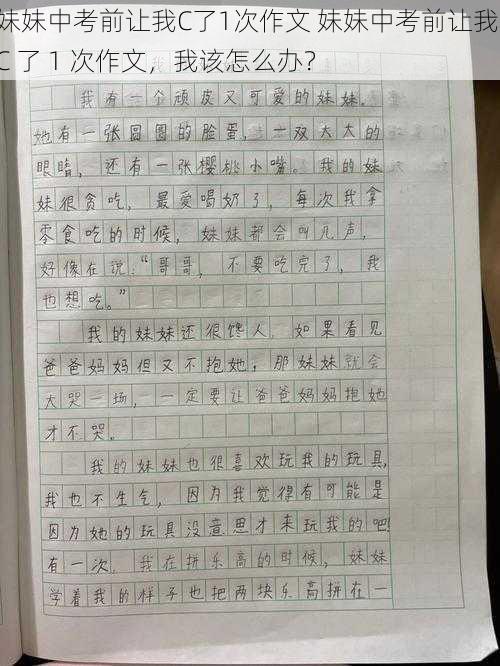 妹妹中考前让我C了1次作文 妹妹中考前让我
C了1次作文，我该怎么办？
我有一个顽皮又可爱的妹妹。
她有一张圆圆的脸蛋，一双大大的
眼睛，还有一张樱桃小嘴。我的妹
妹很贪吃，最爱喝奶了，每次我拿
零食吃的时候，妹妹都会叫几声，
好像在说：“哥哥，不要吃完了，我
也想吃。”
我的妹妹还很馋人，如果看见
爸爸妈妈但又不抱她，那妹妹就会
大哭一场，一定要让爸爸妈妈抱她
才不哭。
我的妹妹也很喜欢玩我的玩具，
我也不生气，因为我觉得有可能是
因为她的玩具没意思才来玩我的吧！
有一次，我在拼乐高的时候，妹妹
学着我的样子也把两块乐高拼在一